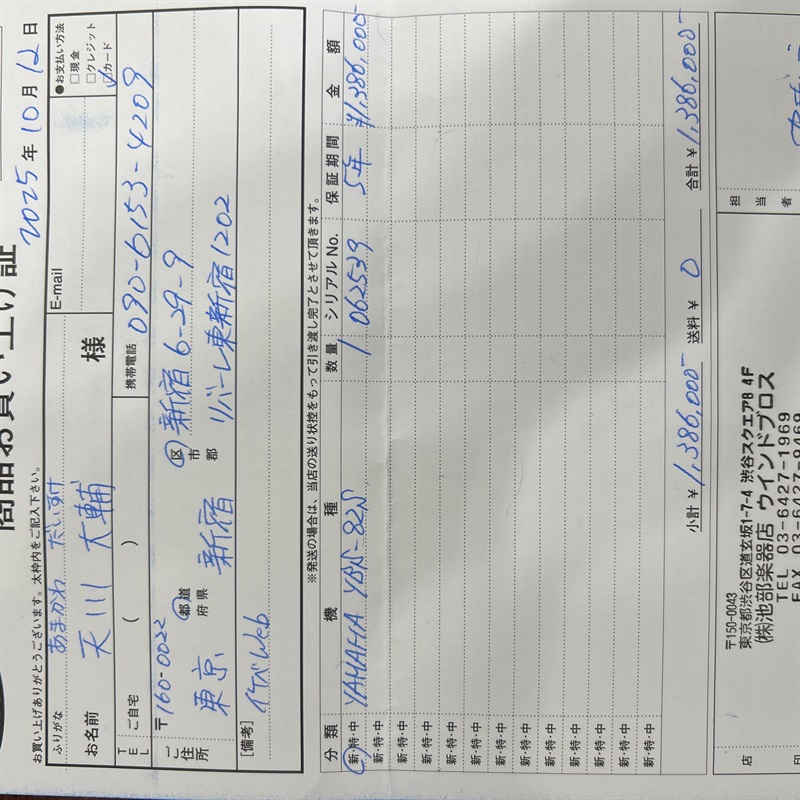 商品お買い上げ証
2025年10月12日
お買い上げありがとうございます。太枠内をご記入下さい。
ふりがな あまかわ だいすけ
お名前 天川 大輔 様
E-mail
●お支払い方法
□現金
□クレジット
☑カード
TEL ご自宅 ( )
携帯電話 090-6153-4209
ご住所 〒160-0022
東京 都道府県 新宿 区市郡 新宿6-29-9
リバーレ東新宿1202
[備考] イケベWeb
※発送の場合は、当店の送り状控をもって引き渡し完了とさせて頂きます。
分類 機種 数量 シリアルNo. 保証期間 金額
新・特・中 YAMAHA YBN-82N 1 062539 5年 ¥1,386,000-
新・特・中
新・特・中
新・特・中
新・特・中
新・特・中
新・特・中
新・特・中
新・特・中
新・特・中
新・特・中
新・特・中
新・特・中
小計 ¥1,386,000- 送料 ¥0 合計 ¥1,386,000-
店印
〒150-0043
東京都渋谷区道玄坂1-7-4 渋谷スクエアB 4F
(株)池部楽器店 ウインドブロス
TEL 03-6427-1969
FAX 03-6427-9469
担当者